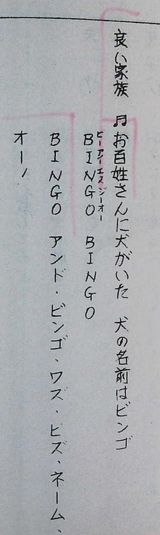 良い家族 月お百姓さんに犬がいた 犬の名前はビンゴ
ビーアイエヌジーオー
BINGO BINGO
BINGO アンド・ビンゴ・ワズ・ヒズ・ネーム、
オーノ